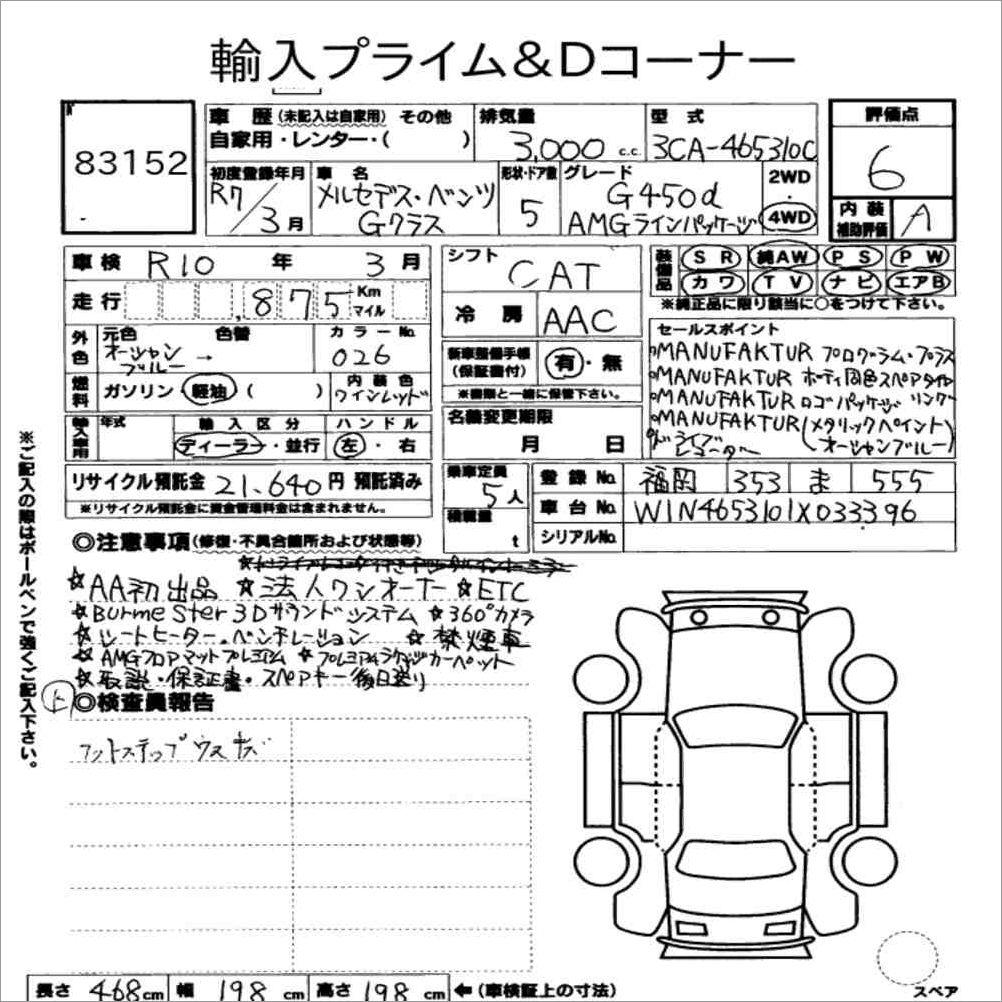 輸入プライム&Dコーナー
83152
車歴(未記入は自家用) その他
自家用・レンター・( )
排気量
3,000 c.c.
型式
3CA-465310C
評価点
6
初度登録年月
R7/3月
車名
メルセデス・ベンツ
Gクラス
形状・ドア数
5
グレード
G450d
AMGラインパッケージ
2WD
4WD
内装
補助評価
A
車検 R10年 3月
走行 ,875 Km マイル
シフト
CAT
冷房 AAC
装備品
SR 純AW PS PW
カワ TV ナビ エアB
※純正品に限り該当に○をつけて下さい。
外色
元色 色替
オーシャンブルー →
カラーNo.
026
燃料
ガソリン・軽油・( )
内装色
ワインレッド
新車整備手帳
(保証書付)
有・無
※書類と一緒に保管下さい。
名義変更期限
月 日
セールスポイント
°MANUFAKTUR プログラム・プラス
°MANUFAKTUR ボディ同色スペアタイヤリング
°MANUFAKTUR ロゴパッケージ
°MANUFAKTUR (メタリックペイント)
(オーシャンブルー)
°ドライブレコーダー
輸入車用
年式 輸入区分 ハンドル
ディーラー・並行 左・右
リサイクル預託金 21,640円 預託済み
※リサイクル預託金に資金管理料金は含まれません。
乗車定員
5人
積載量
t
登録No. 福岡 353 ま 555
車台No. W1N4653101X033396
シリアルNo.
◎注意事項(修復・不具合箇所および状態等)
☆AA初出品 ☆法人ワンオーナー ☆ETC
☆Burmester 3Dサラウンドシステム ☆360°カメラ
☆シートヒーター・ベンチレーション ☆禁煙車
☆AMGフロアマットプレミアム ☆プレミアムラゲッジカーペット
☆取説・保証書・スペアキー後日送り
◎検査員報告
フットステップウスキズ
※ご記入の際はボールペンで強くご記入下さい。
長さ 468cm 幅 198cm 高さ 198cm ←(車検証上の寸法)
スペア